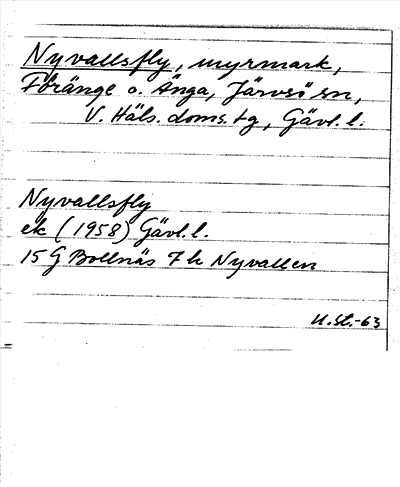 Nyvallsfly, myrmark,
Föränge o. Änga, Järvsö sn,
V. Häls. doms. tg, Gävl. l.
Nyvallsfly
ek (1958) Gävl. l.
15 G Bollnäs 7 h Nyvallen
U.St.-63